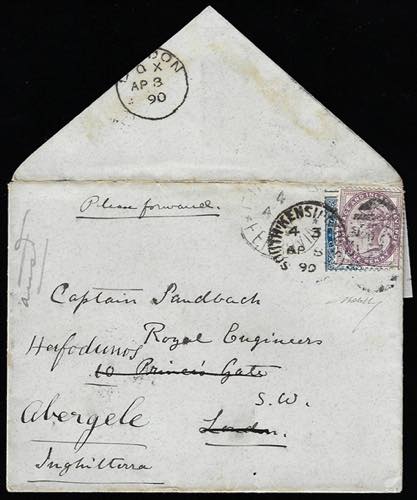 LONDON
QX
AP 3
90
Please forwared.
SOUTH KENSINGTON
4 3
AP 3
90
Captain Sandbach
Royal Engineers
Hafodunos
10 Princis Gate
S.W.
Abergele
London.
Inghilterra